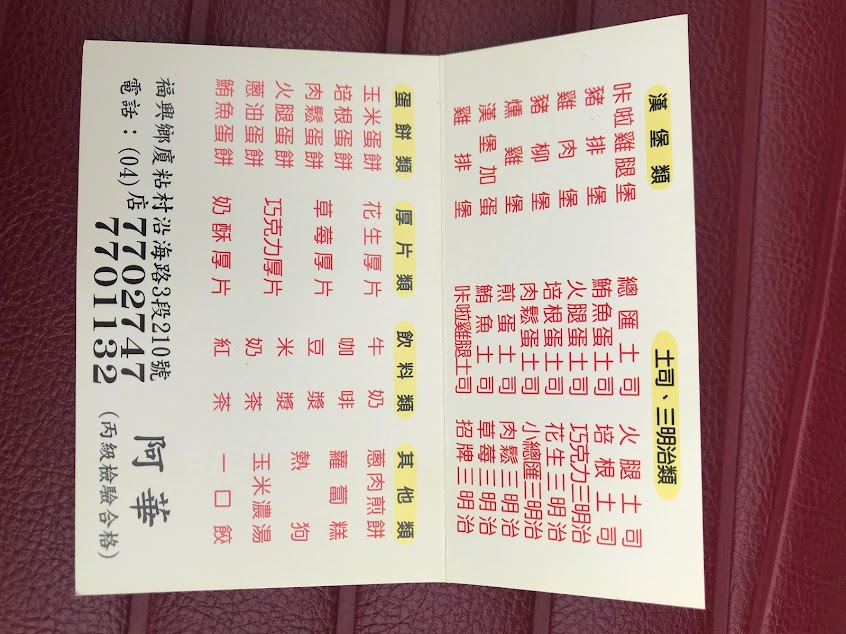 漢堡類
咔啦雞腿堡
豬排堡
雞肉堡
豬柳堡
燻雞堡
漢堡加蛋
雞排堡
土司、三明治類
總匯土司
鮪魚蛋土司
火腿蛋土司
培根蛋土司
肉鬆蛋土司
煎蛋土司
鮪魚土司
咔啦雞腿土司
火腿土司
培根土司
巧克力三明治
花生三明治
小總匯三明治
肉鬆三明治
草莓三明治
招牌三明治
蛋餅類
玉米蛋餅
培根蛋餅
肉鬆蛋餅
火腿蛋餅
蔥油蛋餅
鮪魚蛋餅
厚片類
花生厚片
草莓厚片
巧克力厚片
奶酥厚片
飲料類
牛奶
咖啡
豆漿
米漿
奶茶
紅茶
其他類
蔥肉煎餅
蘿蔔糕
熱狗
玉米濃湯
一口餃
福興鄉廈粘村沿海路3段210號
電話：(04)7702747
店7701132
阿華
(丙級檢驗合格)